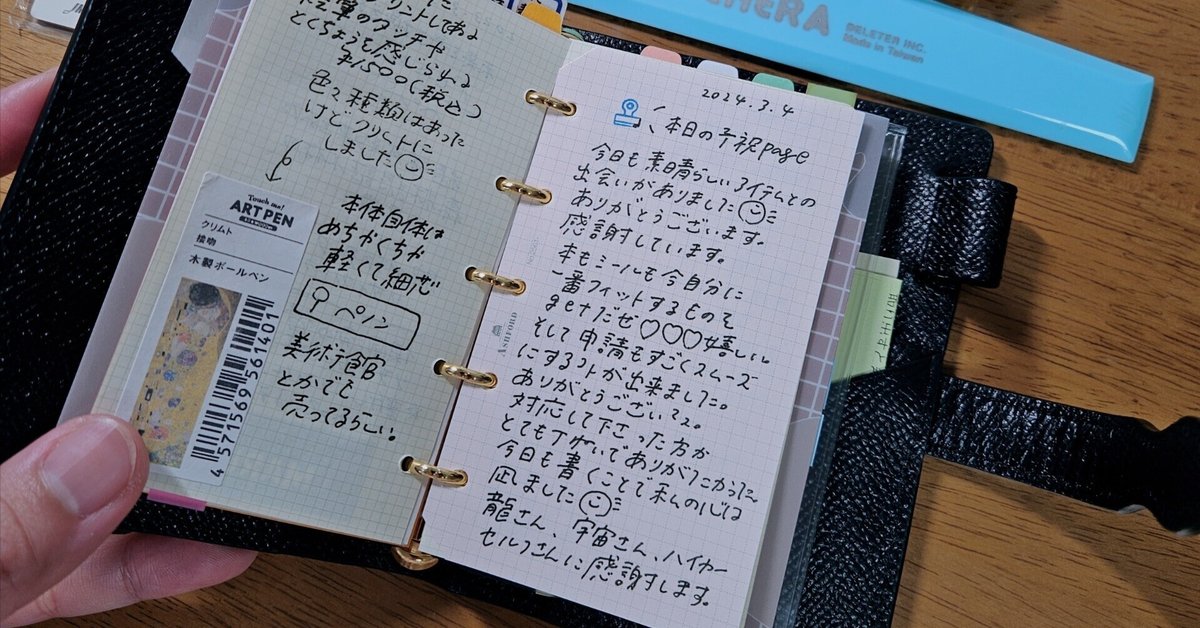 プリントしてある
絵筆のタッチや
とくちょうも感じられる
$1500(税込)
色々種類はあった
けどクリムトに
しました
Touch me!
ART PEN
クリムト
接吻
木製ボールペン
4 571569 561401
本体自体は
めちゃくちゃ
軽くて細芯
ペノン
美術館
とかでも
売ってるらしい。
2024.3.4
本日の予祝page
今日も素晴らしいアイテムとの
出会いがありました
ありがとうございます。
感謝しています。
本もミールも今自分に
一番フィットするものを
getだぜ♡♡♡嬉しい
そして申請もすごくスムーズ
にするコトが出来ました。
ありがとうございます。
対応して下さった方が
とても丁ねいでありがたかった
今日も書くことで私の心は
凪ました
龍さん、宇宙さん、ハイヤー
セルフさんに感謝します。
ASHFORD
DELETER INC.
Made in Taiwan